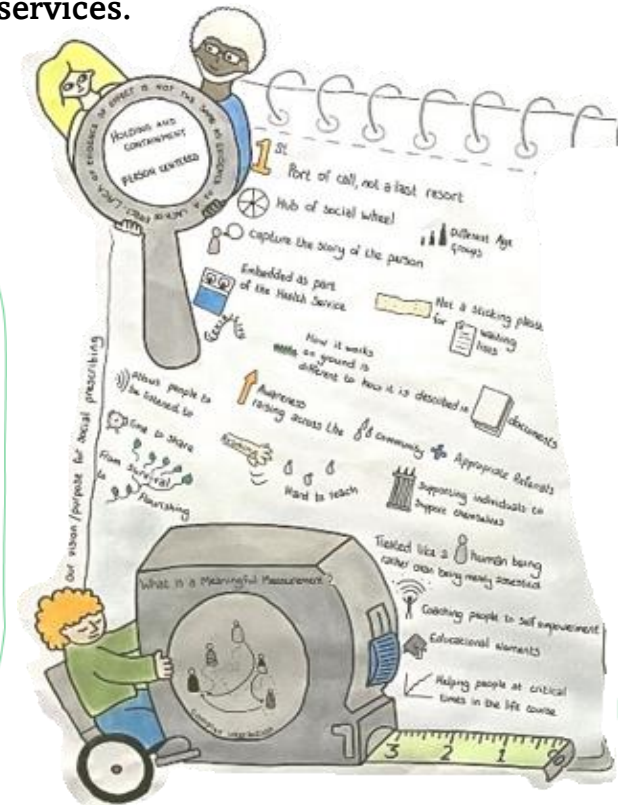 services.
LACK OF EVIDENCE OF EFFECT IS NOT THE SAME AS EVIDENCE OF A LACK OF EFFECT
HOLDING AND
CONTAINMENT
PERSON CENTERED
1st
Port of call, not a last resort
Hub of social wheel
Different Age
groups
Capture the story of the person
Embedded as part
of the Health Service
Not a sticking plaster
for waiting
lists
How it works
on ground is
different to how it is described in
documents
our vision/purpose for social prescribing
allows people to
be listened to
Time to share
From survival
to
flourishing
Awareness
raising across the community
Appropriate Referrals
Reaching
Hard to reach
Supporting individuals to
support themselves
Treated like a human being
rather than being merely assessed
Coaching people to self empowerment
Educational elements
Helping people at critical
times in the life course
What is a Meaningful Measurement?
Complex intervention
3 2 1